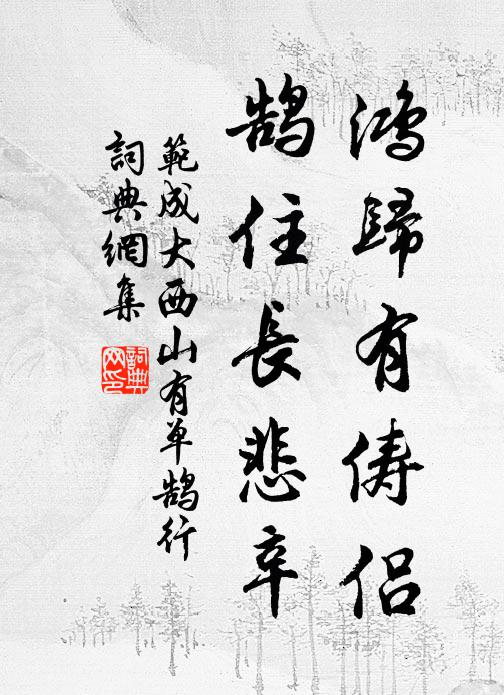 鴻歸有儔侶
鵠住長悲辛
範成大西山有单鵠行
詞典網集
詞典网印